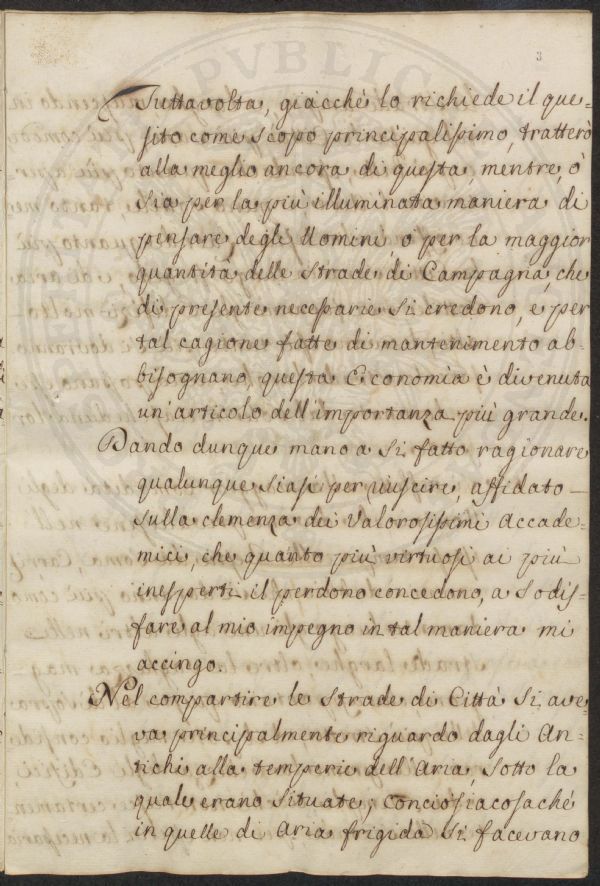 3
Tuttavolta, giacchè lo richiede il que-
sito come scopo principalissimo, tratterò
alla meglio ancora di questa, mentre, ò
sia per la più illuminata maniera di
pensare degli Uomini, o per la maggior
quantità delle Strade di Campagna, che
di presente necessarie si credono, e per
tal cagione fatte di mantenimento ab-
bisognano, questa Economia è divenuta
un articolo dell'importanza più grande.
Dando dunque mano a si fatto ragionare
qualunque siasi per riuscire, affidato
sulla clemenza dei Valorosissimi Accade-
mici, che quanto più virtuosi ai più
inesperti il perdono concedono, a sodis-
fare al mio impegno in tal maniera mi
accingo.
Nel compartire le Strade di Città si ave-
va principalmente riguardo dagli An-
tichi alla temperie dell'Aria, sotto la
quale erano situate; conciosiacosachè
in quelle di Aria frigida si facevano